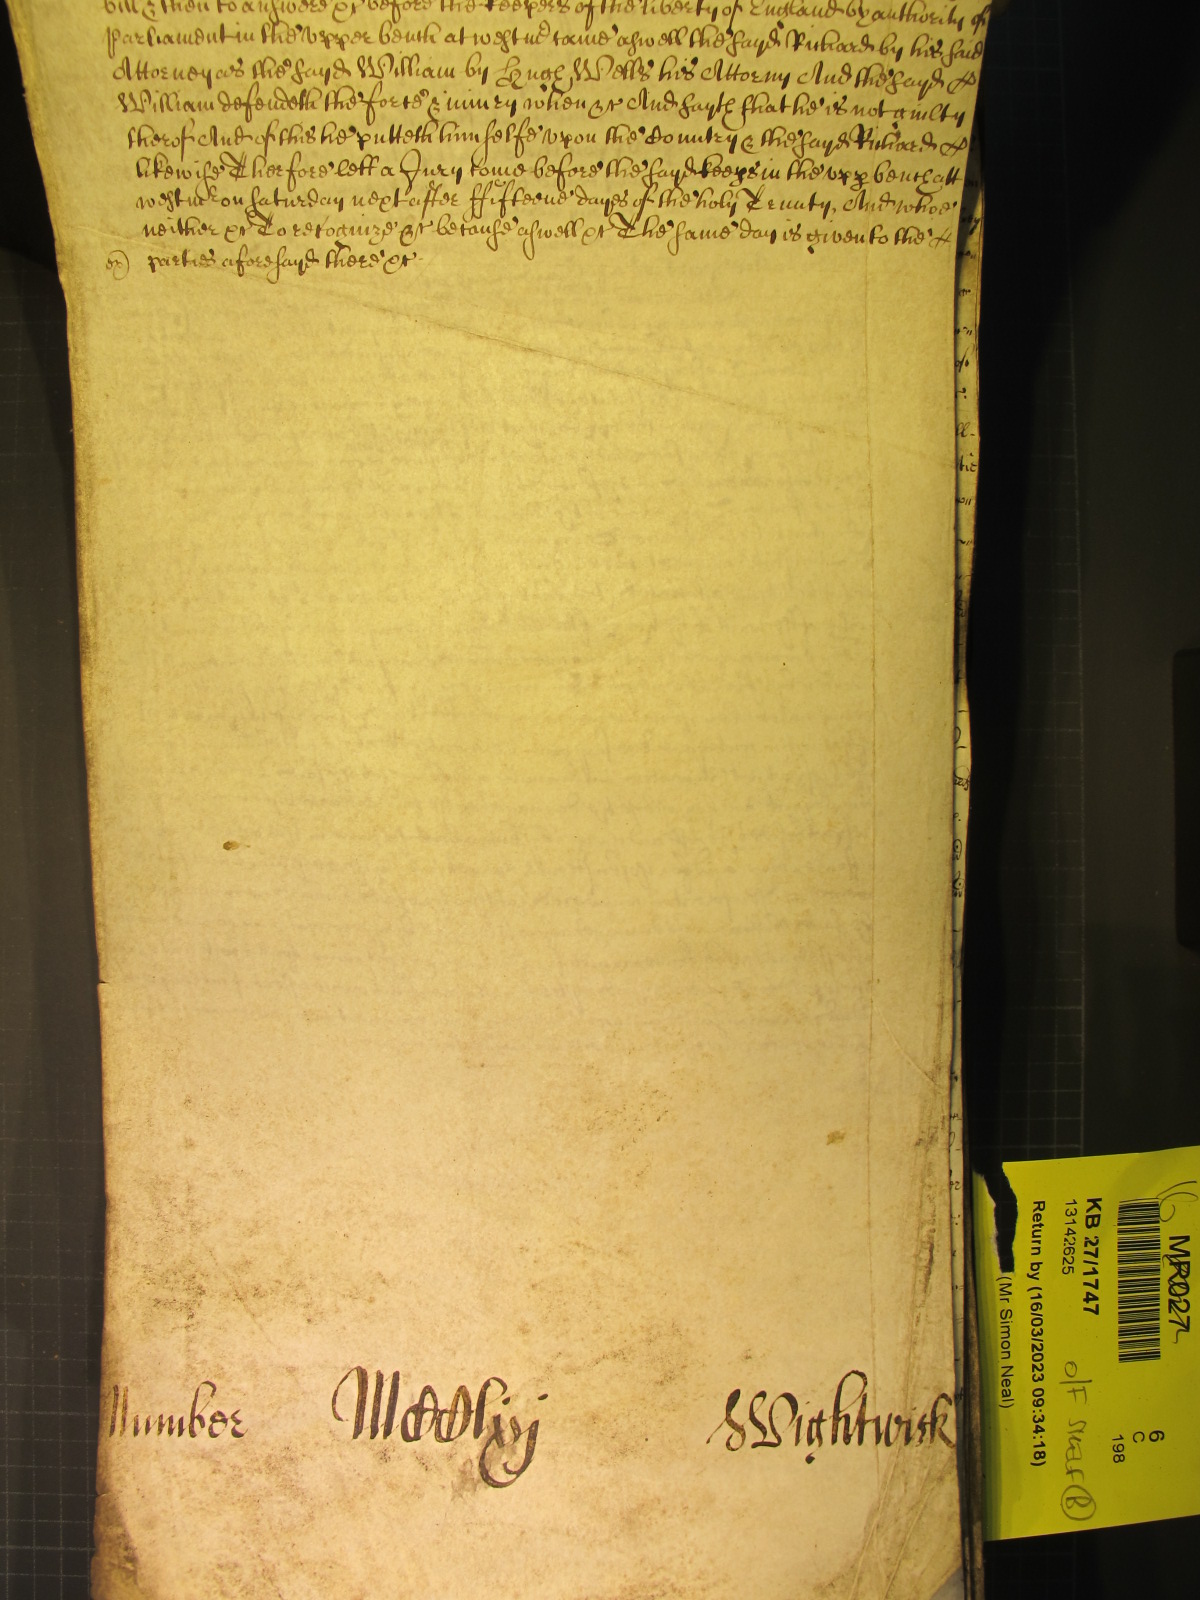 bill & then to answere &c before the keepers of the liberty of England by authority of
Parliament in the vpper bench at westmr came aswell the sayd Richard by his said
Attorney as the sayd William by Hugh Wells his Attorny And the sayd
William defendeth the force & iniury when &c And sayth that he is not guilty
therof And of this he putteth himselfe vpon the Country & the sayd Richard
likewise Therfore lett a Jury come before the sayd keeps in the vpp bench att
westmr on Saturday next after ffifteene dayes of the holy Trinity, And whoe
neither &c To recognize &c because aswell &c The same day is given to the
ex) parties aforesayd there &c
Number MCClxj Wightwick
MR027
KB 27/1747
13142625
Return by (16/03/2023 09:34:18)
(Mr Simon Neal)
O/F
6
C
198